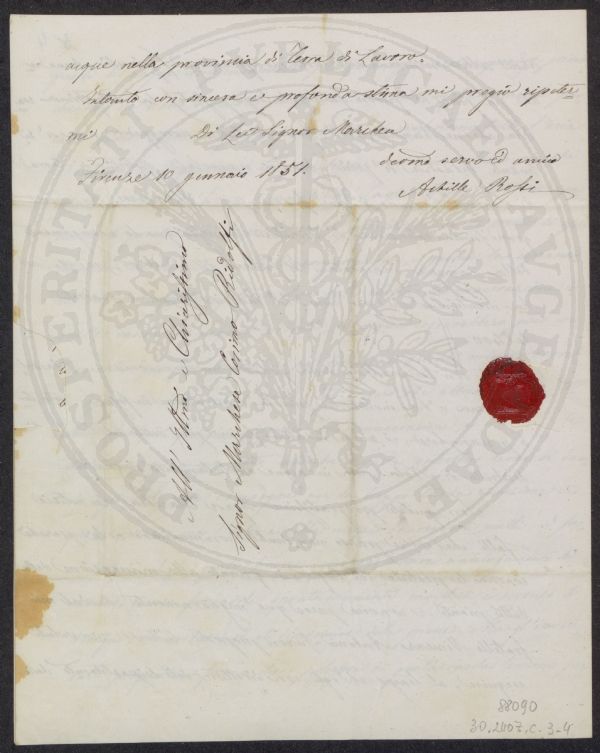 acque nella provincia di Terra di Lavoro.
Intanto con sincera e profonda stima mi pregio ripeter=
mi Di Lei Signor Marchese
Firenze 10 gennaio 1851.
devmo servo ed amico
Achille Rossi
All' Illmo e Chiarissimo
Signor Marchese Cosimo Ridolfi
PROSPERITATI PUBLICAE AUGENDAE
88090
30.2407.c.3-4